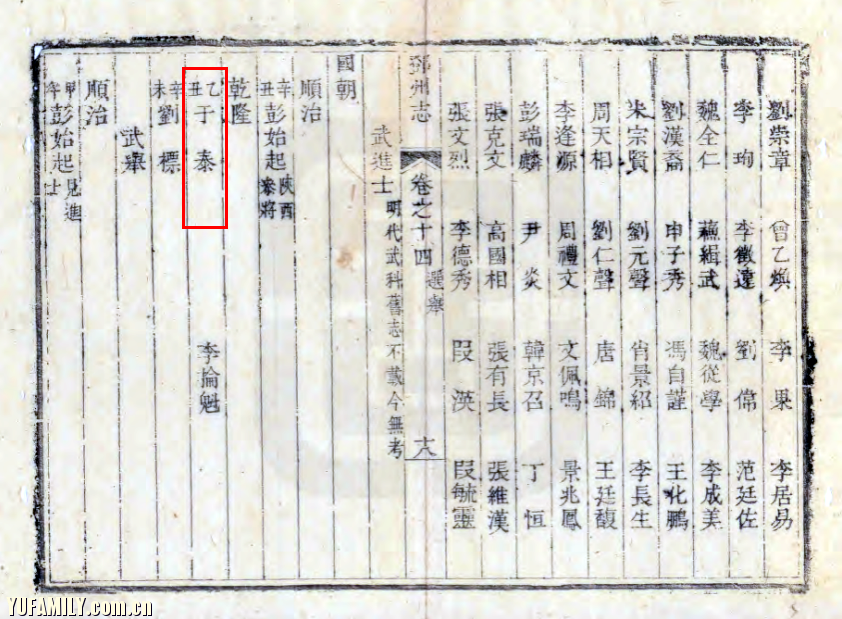 劉崇章 曾乙煥 李果 李居易
李珣 李徵遠 劉偉 范廷佐
魏全仁 蘇緝武 魏從學 李成美
劉漢裔 申子秀 馮自謹 王化鵬
宋宗賢 劉元聲 肖景紹 李長生
周天相 劉仁聲 唐錦 王廷馥
李逢源 周禮文 文佩鳴 景兆鳳
彭瑞麟 尹炎 韓京召 丁恒
張克文 高國相 張有長 張維漢
張文烈 李德秀 段渶 段毓靈
鄧州志 卷之十四 選舉 十八
武進士 明代武科舊志不載今無考
國朝
順治
辛丑 彭始起 陝西參將
乾隆
乙丑 于泰 李掄魁
辛未 劉標
武舉
順治
甲午 彭始起 見進士
YUFAMILY.com.cn